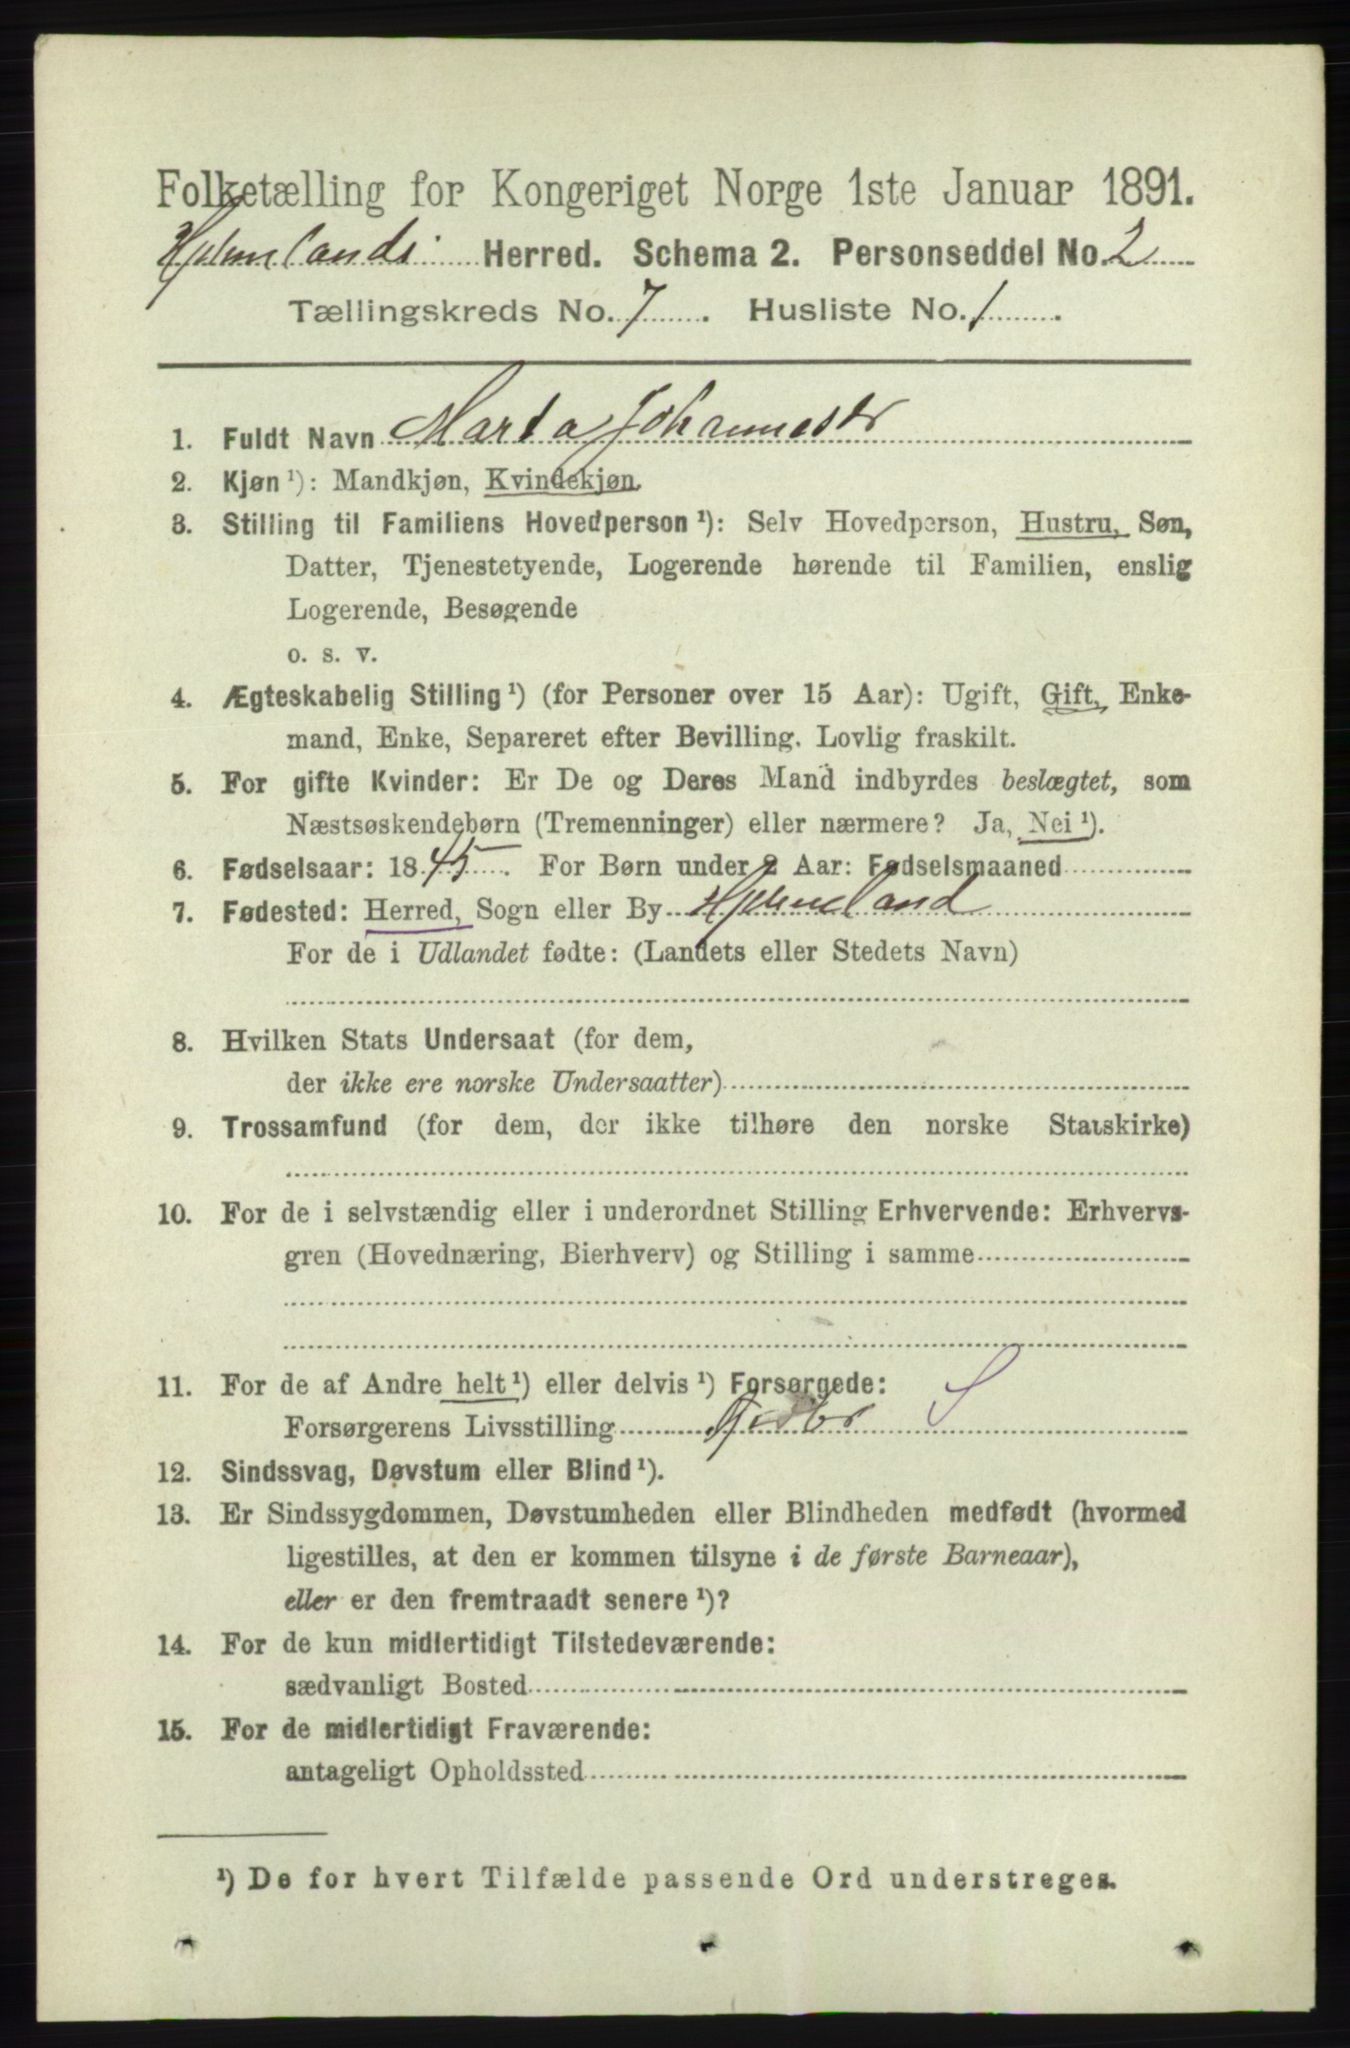 Folketælling for Kongeriget Norge 1ste Januar 1891.
Hjelmelands Herred. Schema 2. Personseddel No. 2
Tællingskreds No. 7. Husliste No. 1.
1. Fuldt Navn Marta Johannesdr
2. Kjøn ¹): Mandkjøn, Kvindekjøn.
3. Stilling til Familiens Hovedperson ¹): Selv Hovedperson, Hustru, Søn,
Datter, Tjenestetyende, Logerende hørende til Familien, enslig
Logerende, Besøgende
o. s. v.
4. Ægteskabelig Stilling ¹) (for Personer over 15 Aar): Ugift, Gift, Enke-
mand, Enke, Separeret efter Bevilling. Lovlig fraskilt.
5. For gifte Kvinder: Er De og Deres Mand indbyrdes beslægtet, som
Næstsøskendebørn (Tremenninger) eller nærmere? Ja, Nei ¹).
6. Fødselsaar: 1845. For Børn under 2 Aar: Fødselsmaaned
7. Fødested: Herred, Sogn eller By Hjelmeland
For de i Udlandet fødte: (Landets eller Stedets Navn)
8. Hvilken Stats Undersaat (for dem,
der ikke ere norske Undersaatter)
9. Trossamfund (for dem, der ikke tilhøre den norske Statskirke)
10. For de i selvstændig eller i underordnet Stilling Erhvervende: Erhvervs-
gren (Hovednæring, Bierhverv) og Stilling i samme
11. For de af Andre helt ¹) eller delvis ¹) Forsørgede: S
Forsørgerens Livsstilling
12. Sindssvag, Døvstum eller Blind ¹).
13. Er Sindssygdommen, Døvstumheden eller Blindheden medfødt (hvormed
ligestilles, at den er kommen tilsyne i de første Barneaar),
eller er den fremtraadt senere ¹)?
14. For de kun midlertidigt Tilstedeværende:
sædvanligt Bosted
15. For de midlertidigt Fraværende:
antageligt Opholdssted
¹) De for hvert Tilfælde passende Ord understreges.